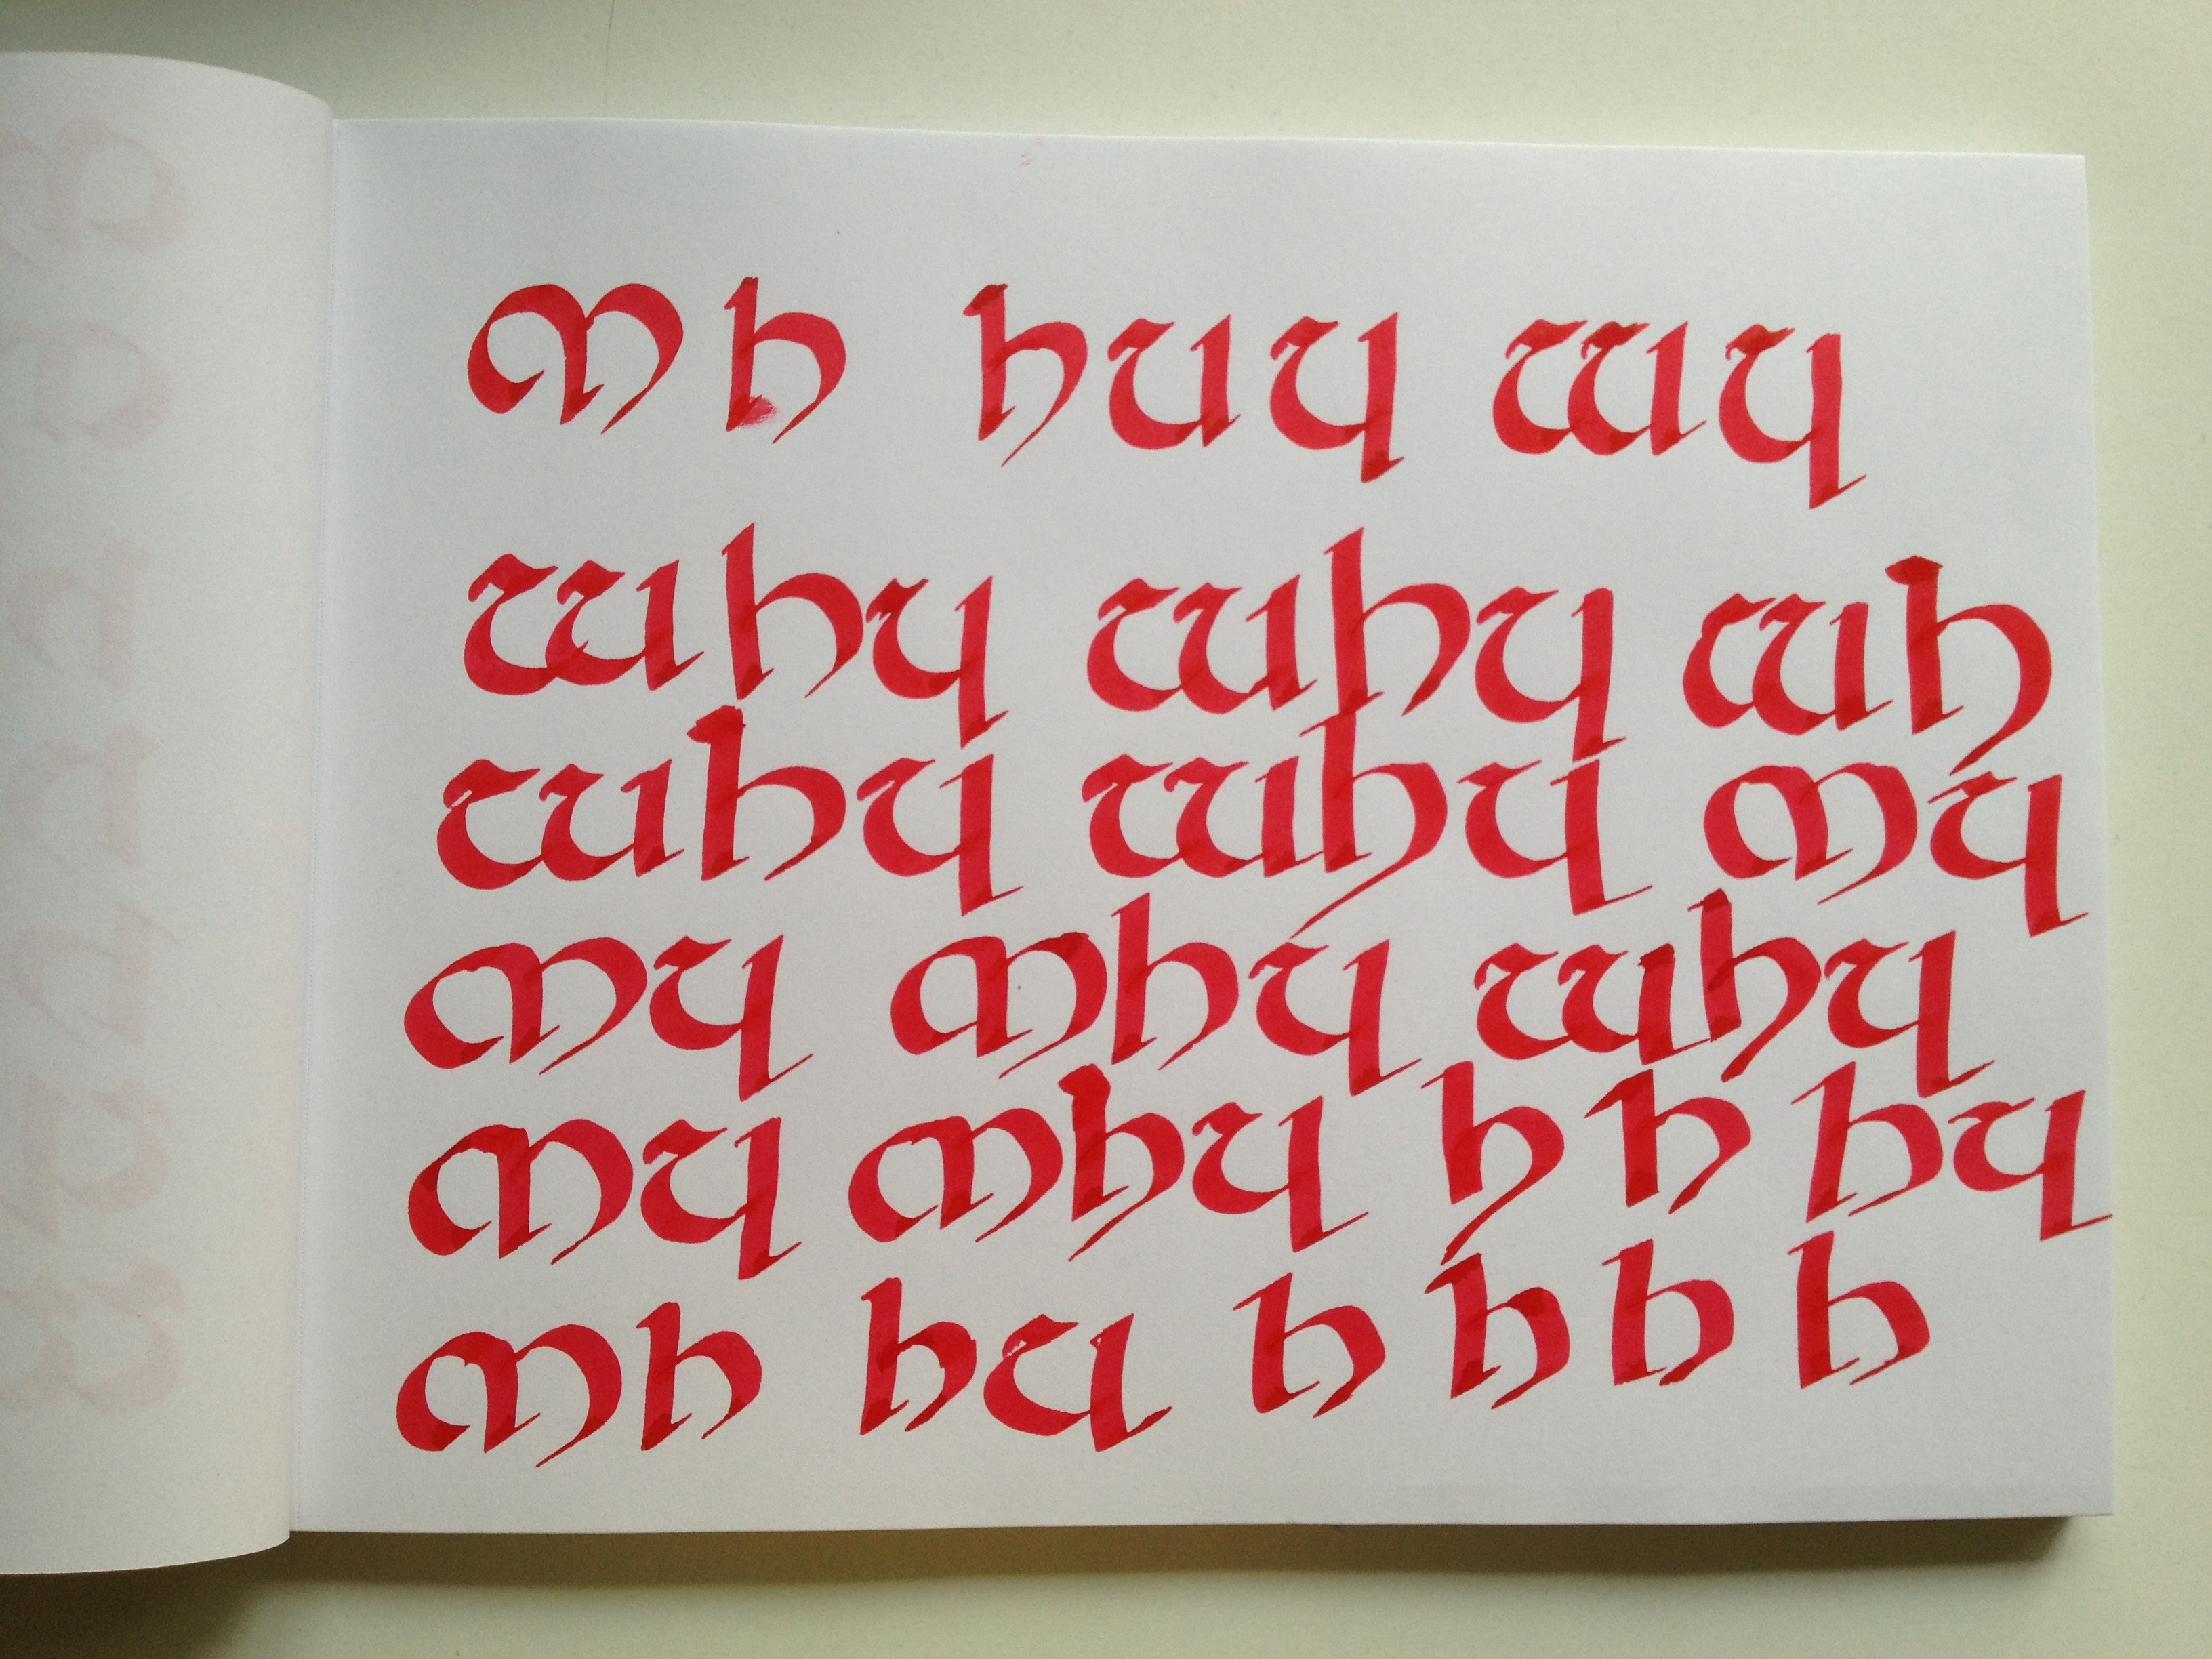 q q q q nq qw
hq q q hqw hw
hqm hqw hw
hw hqm hqm
qm hqm hqm
hm hnq qw